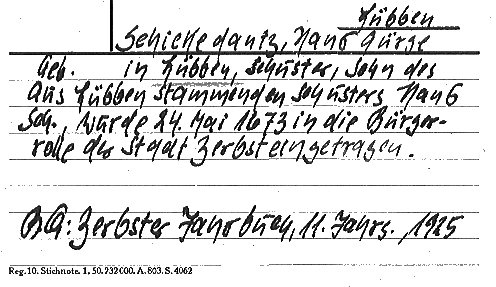 Lübben
Schickedantz, Hans Gürge
Geb. in Lübben, Schuster, Sohn des
aus Lübben stammenden Schusters Hans
Sch., wurde 24. Mai 1673 in die Bürger-
rolle der Stadt Zerbst eingetragen.
BQ: Zerbster Jahrbuch, 11. Jahrg., 1925
Reg. 10. Stichnote. 1, 50. 732000. A. 803. S. 4062